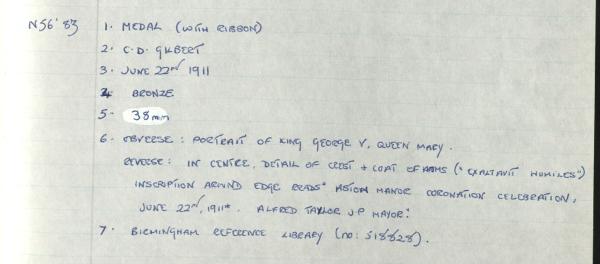 N56'83
1. MEDAL (WITH RIBBON)
2. C.D. GILBERT
3. JUNE 22nd 1911
4. BRONZE
5. 38mm
6. OBVERSE: PORTRAIT OF KING GEORGE V, QUEEN MARY.
REVERSE: IN CENTRE, DETAIL OF CREST + COAT OF ARMS ("EXALTAVIT HUMILES")
INSCRIPTION AROUND EDGE READS "ASTON MANOR CORONATION CELEBRATION,
JUNE 22nd, 1911*. ALFRED TAYLOR J.P MAYOR".
7. BIRMINGHAM REFERENCE LIBRARY (no: 518828).